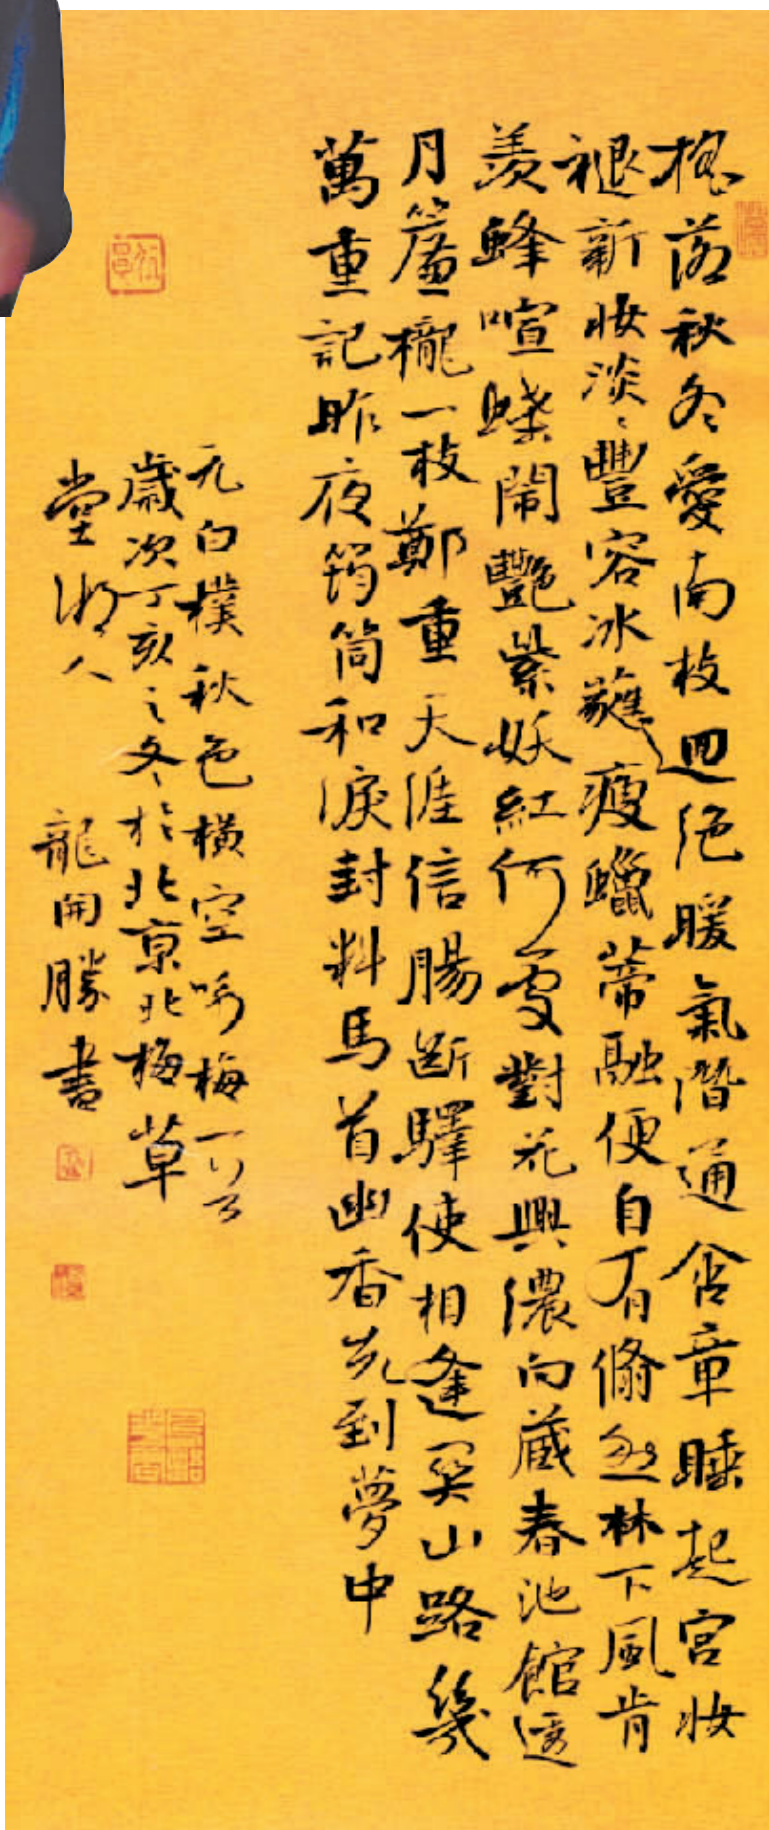 搖落秋冬愛南枝迥絕暖氣潛通含章睡起宮妝
褪新妝淡淡豐容冰蕤瘦蠟蒂融便自有翛然林下風肯
羨蜂喧蝶鬧艷紫妖紅何處對花興濃向藏春池館透
月簾櫳一枝鄭重天涯信腸斷驛使相逢關山路幾
萬重記昨夜筠筒和淚封料馬首幽香先到夢中
元白樸秋色橫空咏梅一首
歲次丁亥之冬於北京北梅草
堂湖人 龍開勝書